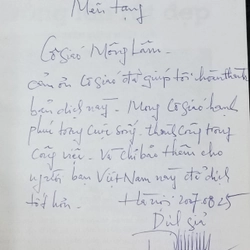 Mến tặng
Cô giáo Mộng Lâm.
cảm ơn Cô giáo đã giúp tôi hoàn thành
bản dịch này. Mong Cô giáo hạnh
phúc trong cuộc sống, thành công trong
công việc. Và chỉ bảo thêm cho
người bạn Việt Nam này để dịch
tốt hơn.
Hà nội 2007.08.25
Dịch giả